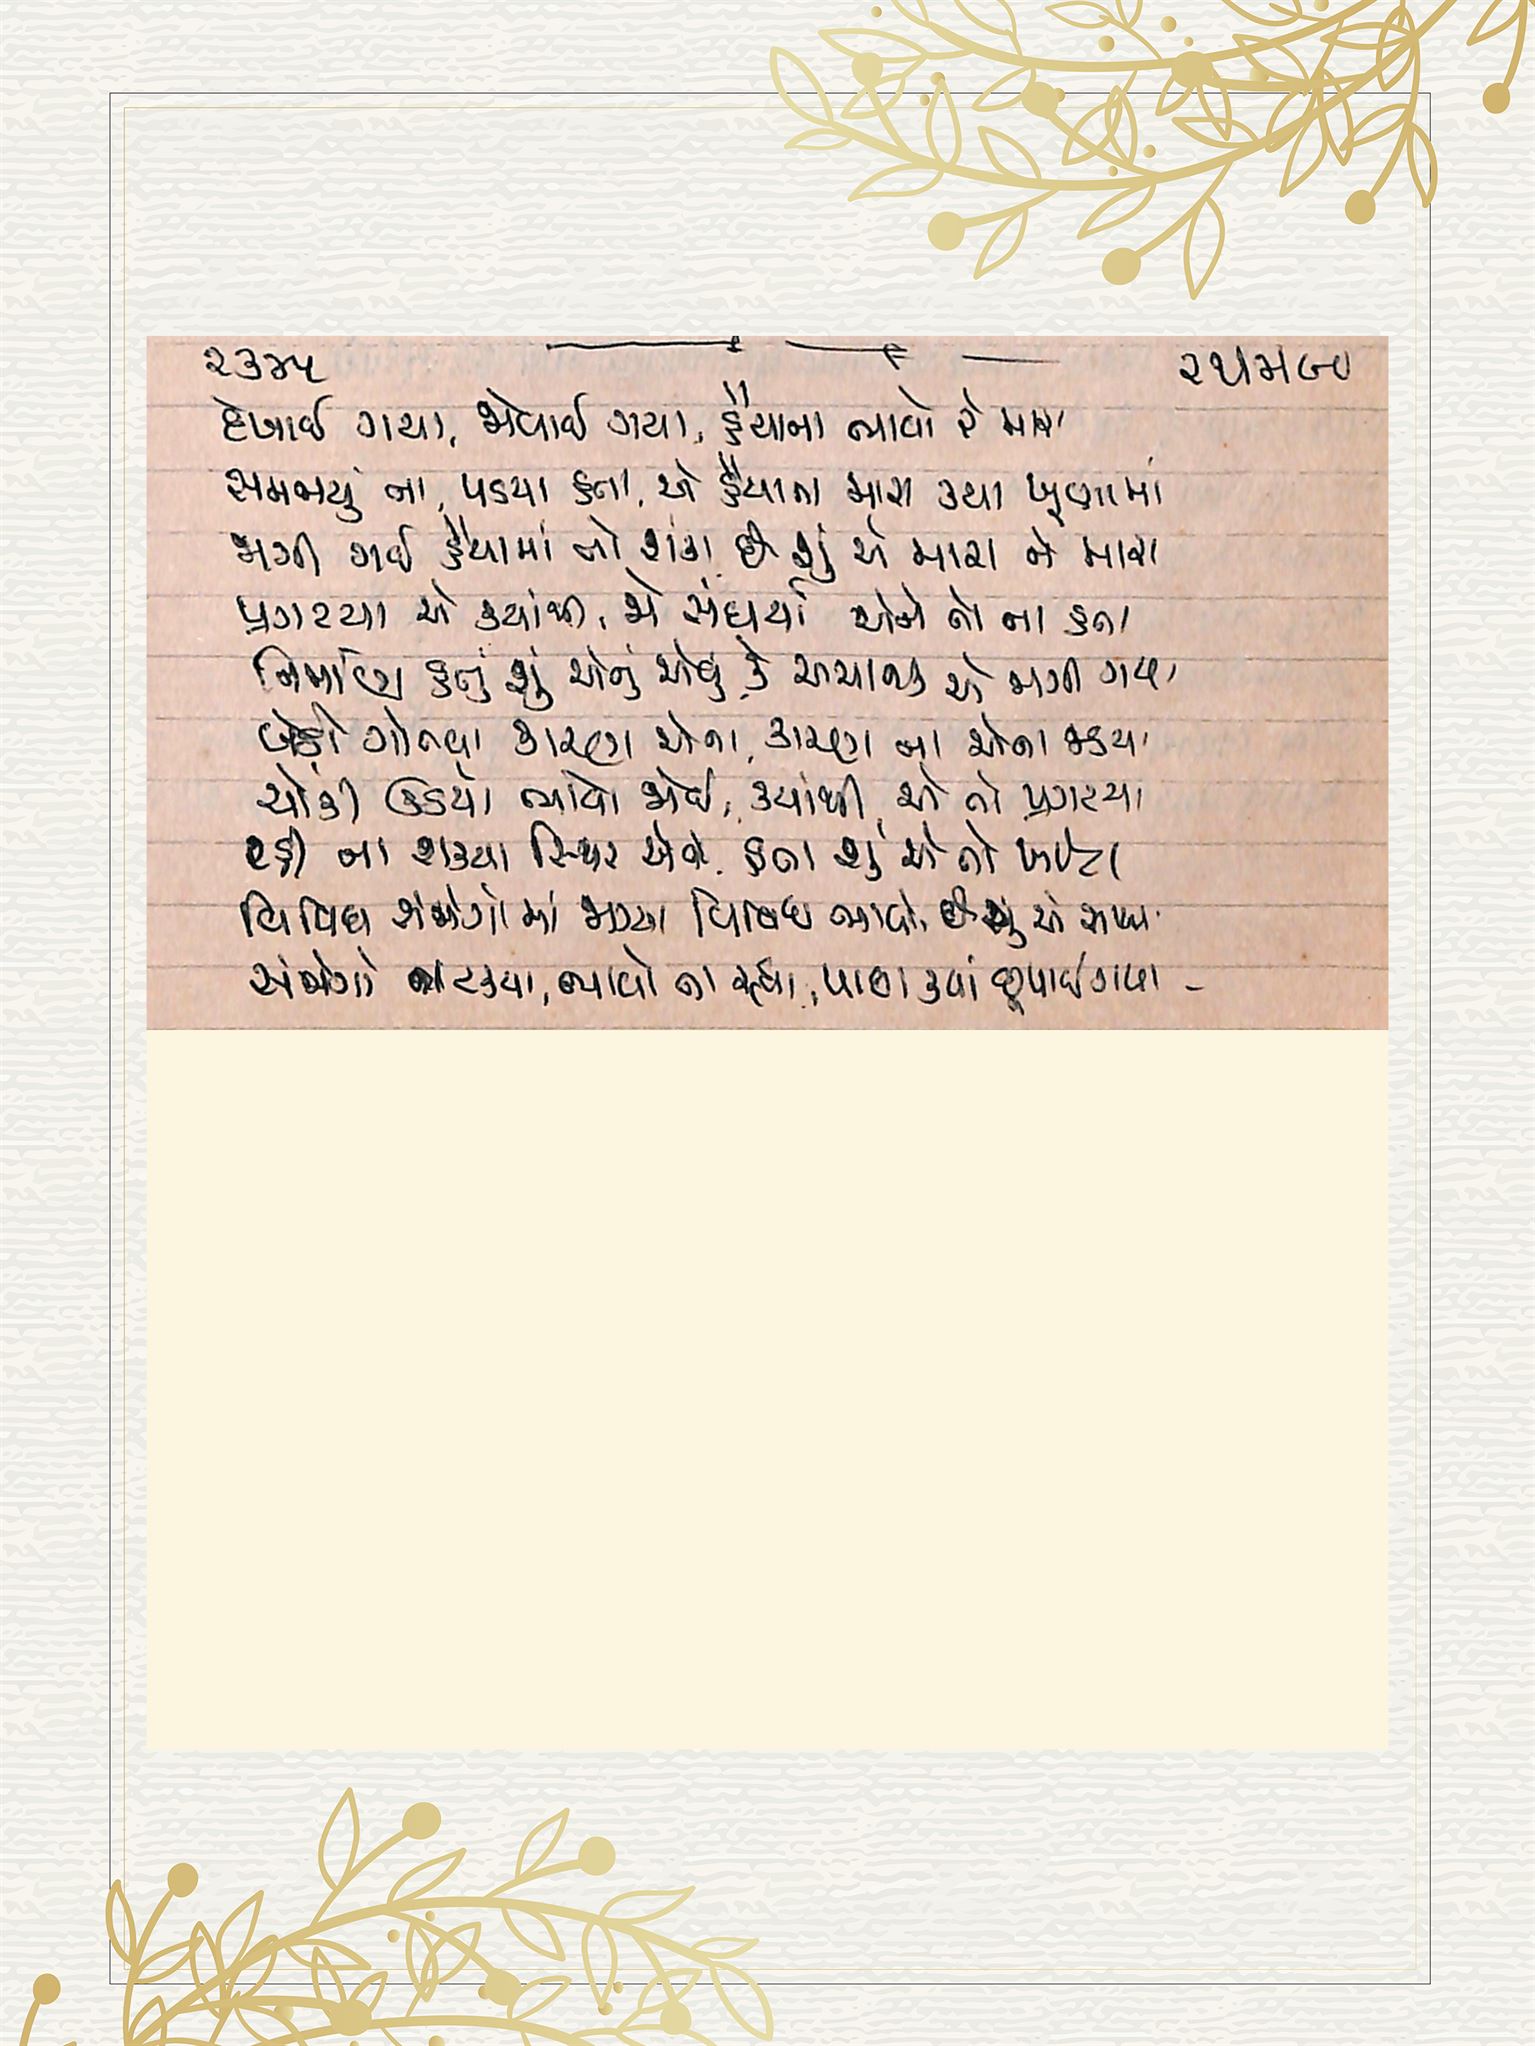 ૨૩૪૫
દેખાઈ ગયા, જોવાઈ ગયા, હૈયાના ભાવો રે મારા
સમજાયું ના, પડયા હતા, એ હૈયાના મારા કયા ખૂણામાં
જાગી ગઈ હૈયામાં તો શંકા, છે શું એ મારા ને મારા
પ્રગટયા એ કયાંથી, જે સંઘર્યા એને તો ના હતા
નિર્માણ હતું શું એનું એવું કે અચાનક એ જાગી ગયા
બેઠો ગોતવા કારણ એના, કારણ ના એના જડયા
ચોંકી ઊઠયો ભાવો જોઈ, કયાંથી એ તો પ્રગટયા
રહી ના શકયા સ્થિર એવા, હતા શું એ તો ખોટા
વિવિધ સંજોગોમાં જાગ્યા વિવિધ ભાવો, છે શું એ સાચા
સંજોગો ના ટકયા, ભાવો ના રહ્યા, પાછા કયાં છૂપાઈ ગયા